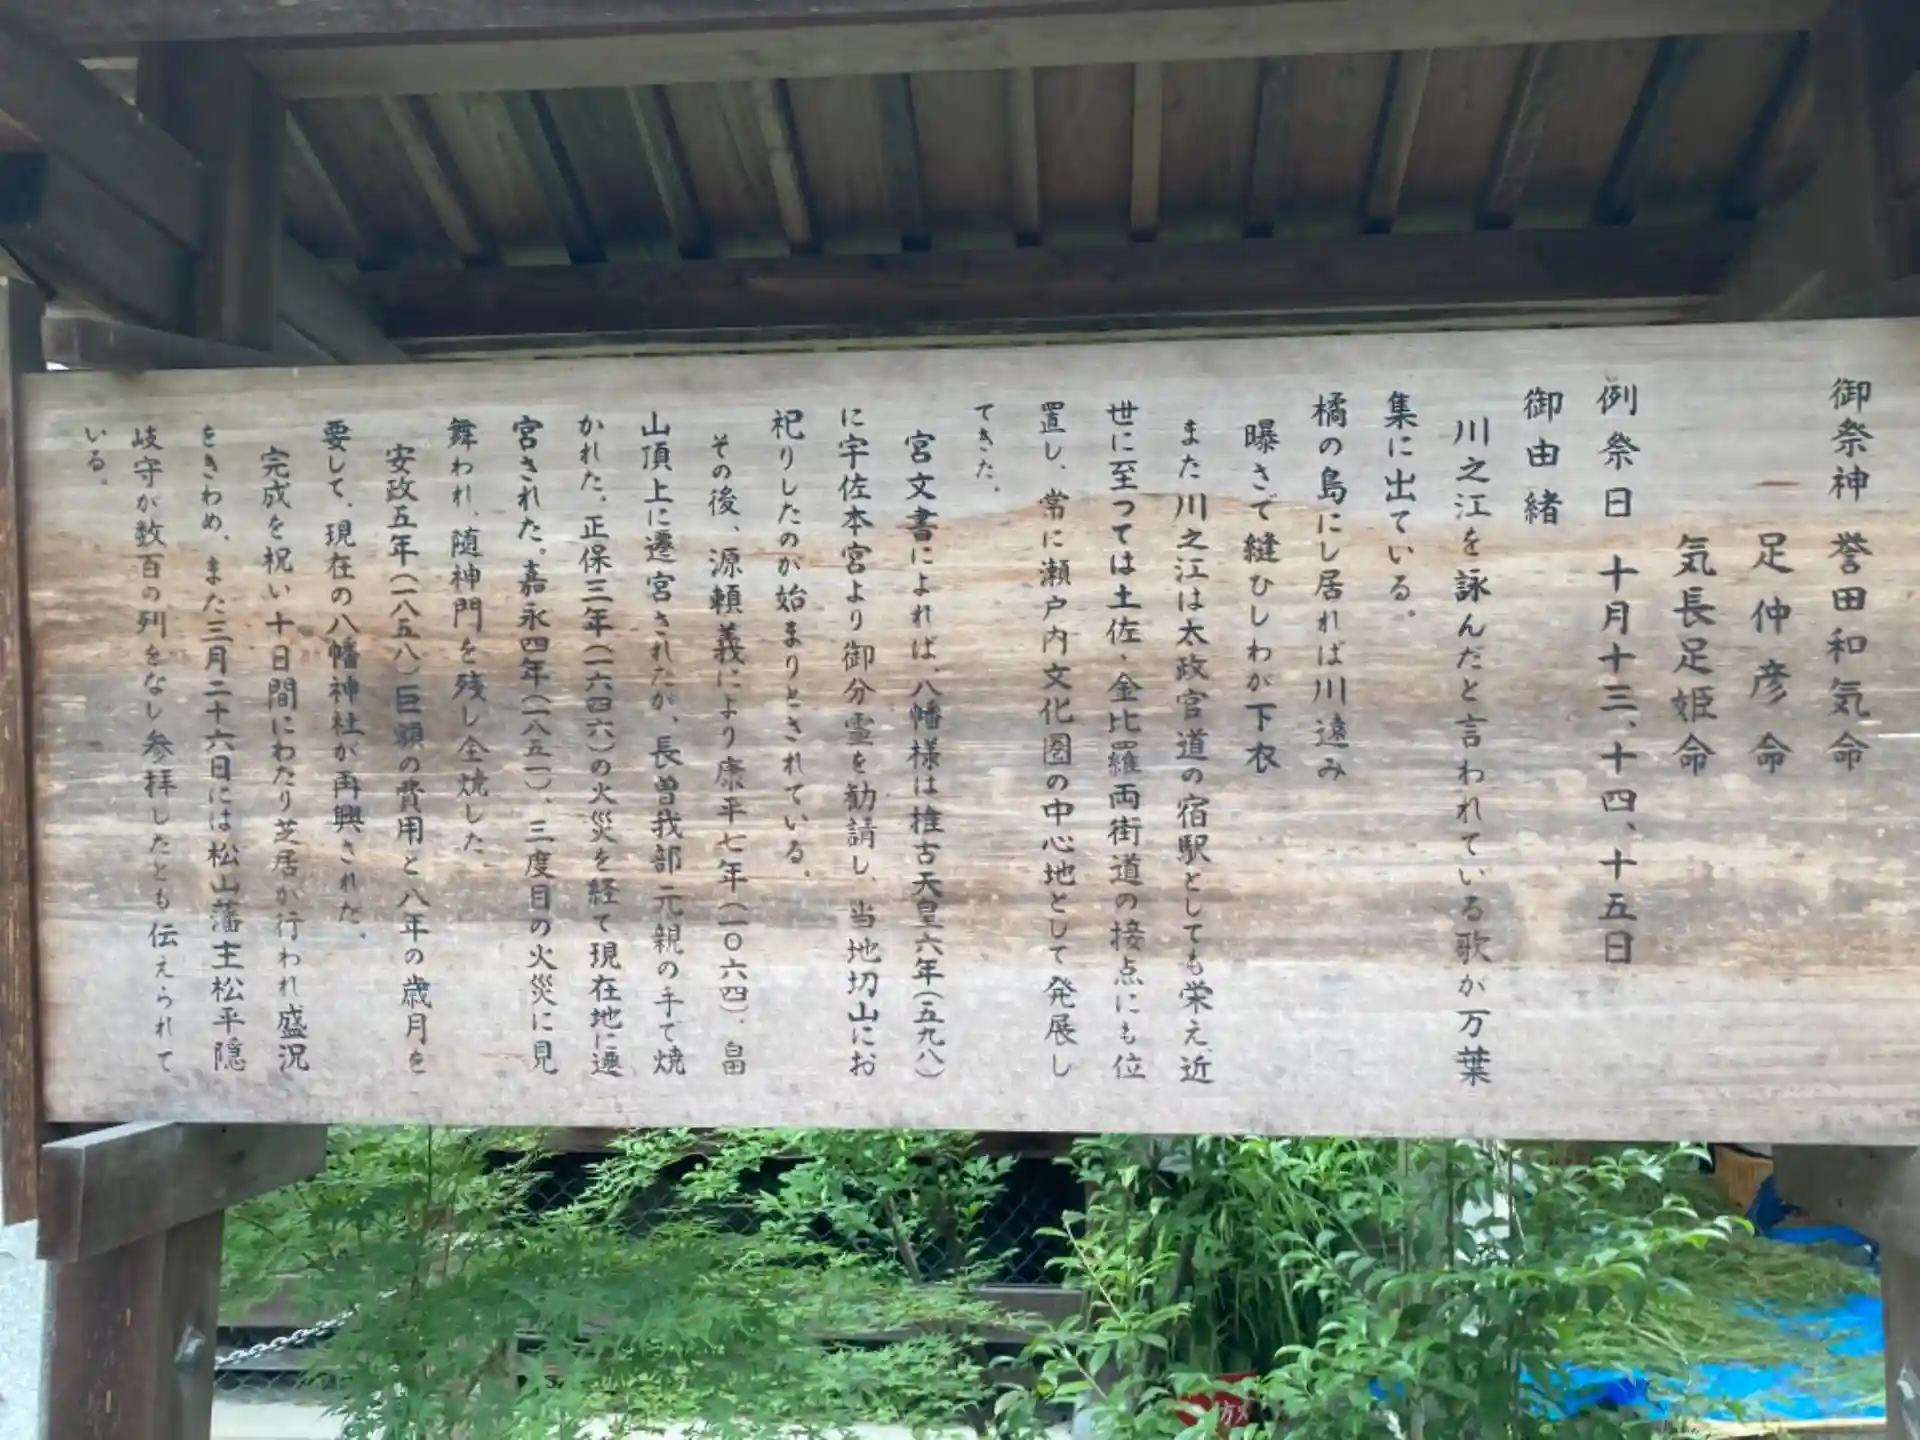 御祭神 誉田和気命
足仲彦命
気長足姫命
例祭日 十月十三、十四、十五日
御由緒
川之江を詠んだと言われている歌が万葉
集に出ている。
橘の島にし居れば川遠み
曝さで縫ひしわが下衣
また川之江は太政官道の宿駅としても栄え、近
世に至つては土佐、金比羅両街道の接点にも位
置し、常に瀬戸内文化圏の中心地として発展し
てきた。
宮文書によれば、八幡様は推古天皇六年(五九八)
に宇佐本宮より御分霊を勧請し、当地切山にお
祀りしたのが始まりとされている。
その後、源頼義により康平七年(一〇六四)、畠
山頂上に遷宮されたが、長曽我部元親の手で焼
かれた。正保三年(一六四六)の火災を経て現在地に遷
宮された。嘉永四年(一八五一)、三度目の火災に見
舞われ、随神門を残し全焼した。
安政五年(一八五八)巨額の費用と八年の歳月を
要して、現在の八幡神社が再興された。
完成を祝い十日間にわたり芝居が行われ盛況
をきわめ、また三月二十六日には松山藩主松平隠
岐守が数百の列をなし参拝したとも伝えられて
いる。